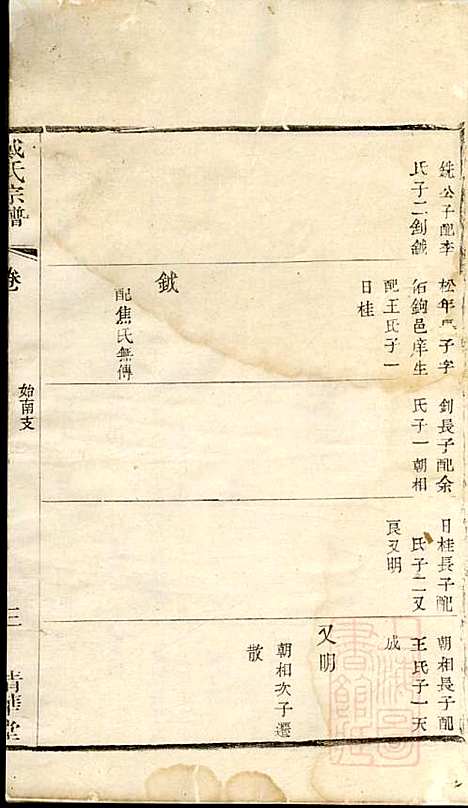 銑公子配李
氏子二釗鉞
松年長子字
佰鉤邑庠生
配王氏子一
日桂
鉞
配焦氏無傳
釗長子配余
氏子一朝相
日桂長子配
氏子二又
良又明
朝相長子配
王氏子一天
成
又明
朝相次子遷
散
戴氏宗譜
卷
始南支
三
清華堂